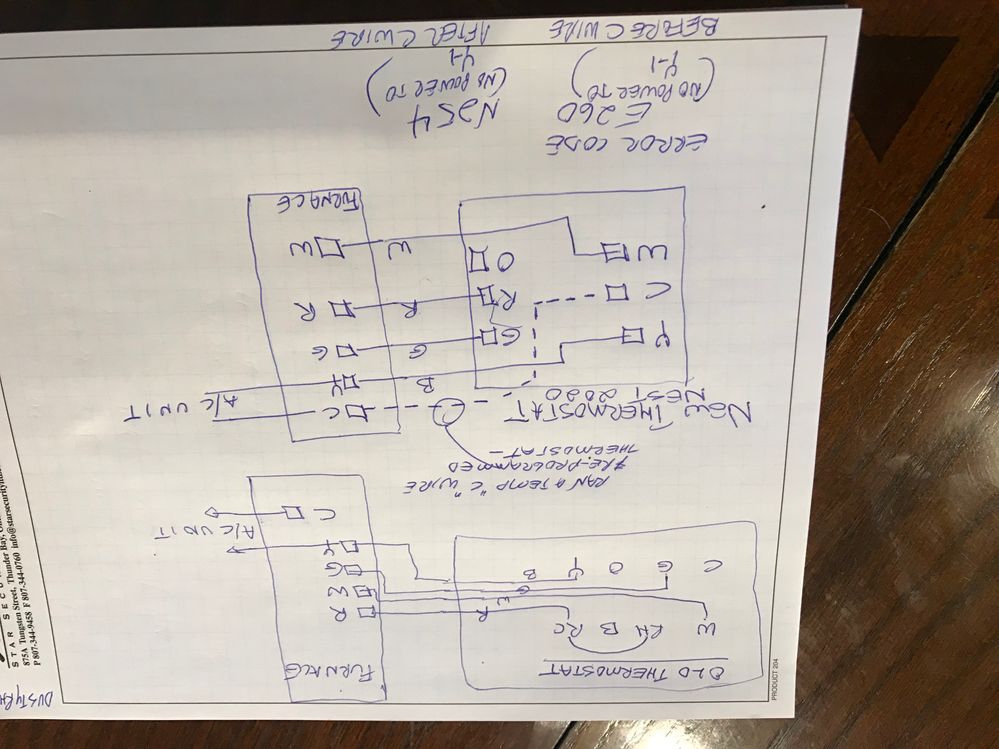 OLD THERMOSTAT
FURNACE
W RH B RC
R
W
G
C G O Y B
R
W
G
Y
A/C UNIT
C
RAN A TEMP "C" WIRE
& RE-PROGRAMMED
THERMOSTAT -
NEW THERMOSTAT
NEST 2020
C
A/C UNIT
B Y
Y G G G
C R R R
O
W W W
FURNACE
ERROR CODE
E260
(NO POWER TO
Y-1)
BEFORE C WIRE
N254
(NO POWER TO
Y-1)
AFTER C WIRE
PRODUCT 204
STAR SECU
875A Tungsten Street, Thunder Bay,
P 807-344-9458 F 807-344-0760
DUSTY